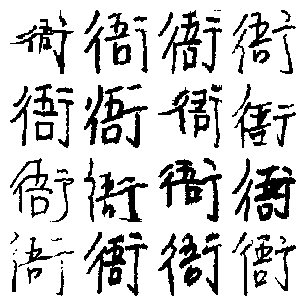 衙衙衙衙
衙衙衙衙
衙衙衙衙
衙衙衙衙